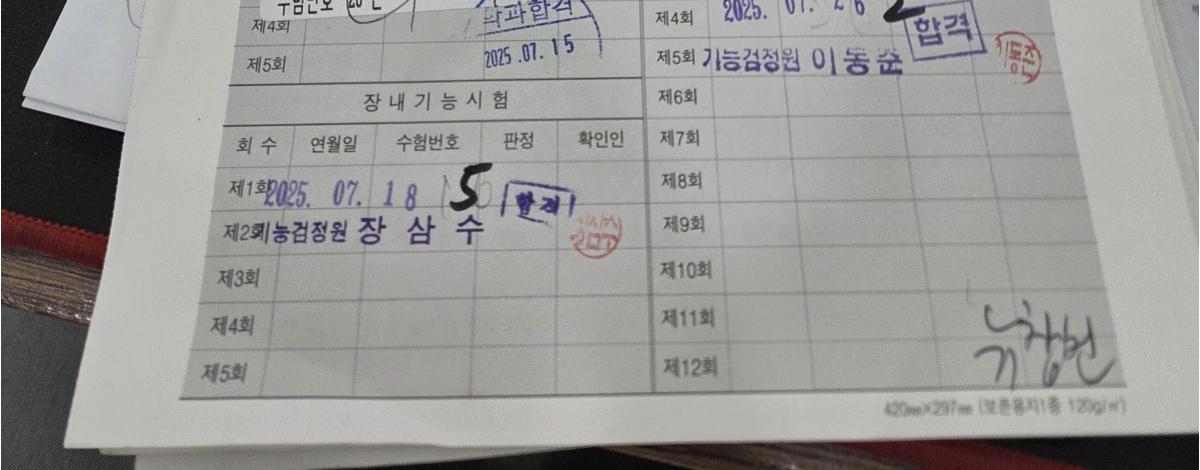 수험번호
제4회
학과합격
제5회
2025.07.15
장내기능시험
회 수 연월일 수험번호 판정 확인인
제1회 2025. 07. 18 5 합격
제2회 기능검정원 장삼수
제3회
제4회
제5회
제4회 2025. 07. 26 2 합격
제5회 기능검정원 이동순
제6회
제7회
제8회
제9회
제10회
제11회
제12회
420㎜×297㎜ (보존용지1종 120g/㎡)